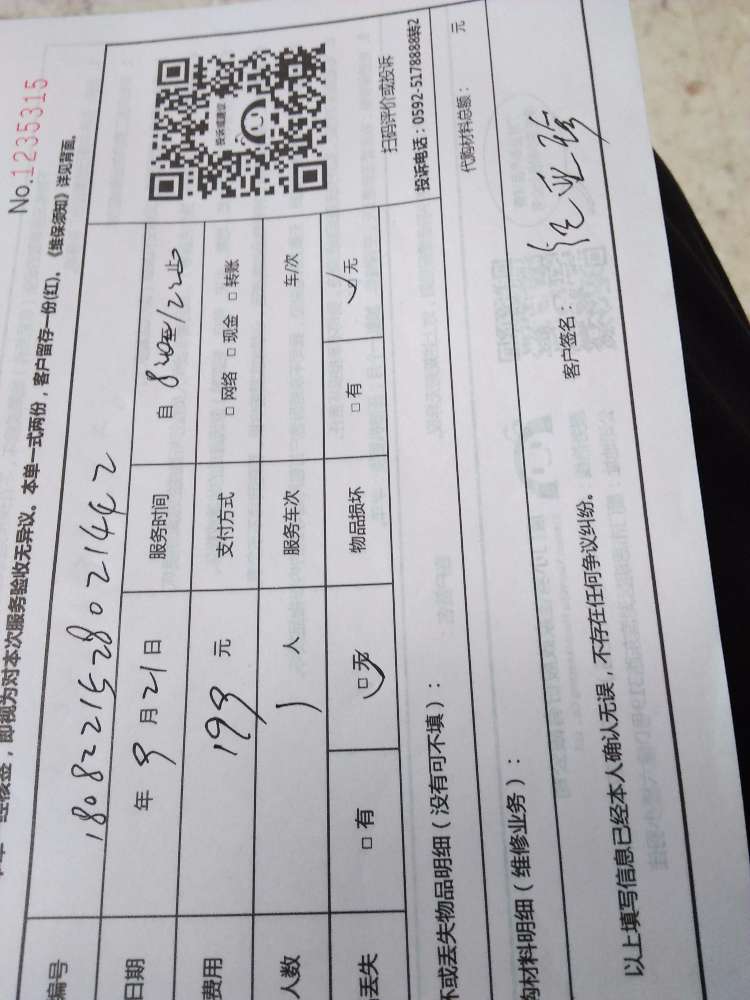 No.1235315
即视为对本次服务验收无异议。本单一式两份，客户留存一份(红)。《维保须知》详见背面。
编号 1808221528021442
日期 年 9 月 21 日 服务时间 自 8:30至12:00止
费用 199 元 支付方式 □ 网络 □ 现金 □ 转账
人数 1 人 服务车次 车/次
丢失 □ 有 □ 无 物品损坏 □ 有 无
投诉或建议
扫码评价或投诉
投诉电话：0592-5178888转2
坏或丢失物品明细（没有可不填）：
购材料明细（维修业务）： 代购材料总额： 元
以上填写信息已经本人确认无误，不存在任何争议纠纷。 客户签名：